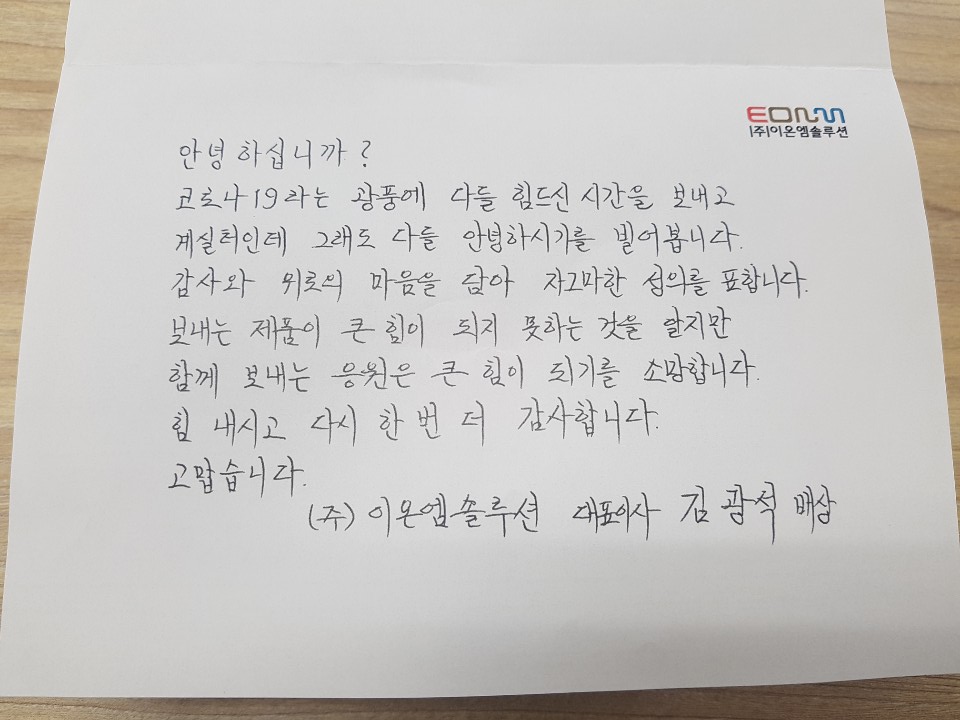 EONM
(주)이온엠솔루션
안녕하십니까?
코로나19라는 광풍에 다들 힘드신 시간을 보내고
계실터인데 그래도 다들 안녕하시기를 빌어봅니다.
감사와 위로의 마음을 담아 자그마한 성의를 표합니다.
보내는 제품이 큰 힘이 되지 못하는 것을 알지만
함께 보내는 응원은 큰 힘이 되기를 소망합니다.
힘 내시고 다시 한 번 더 감사합니다.
고맙습니다.
(주) 이온엠솔루션 대표이사 김광석 배상